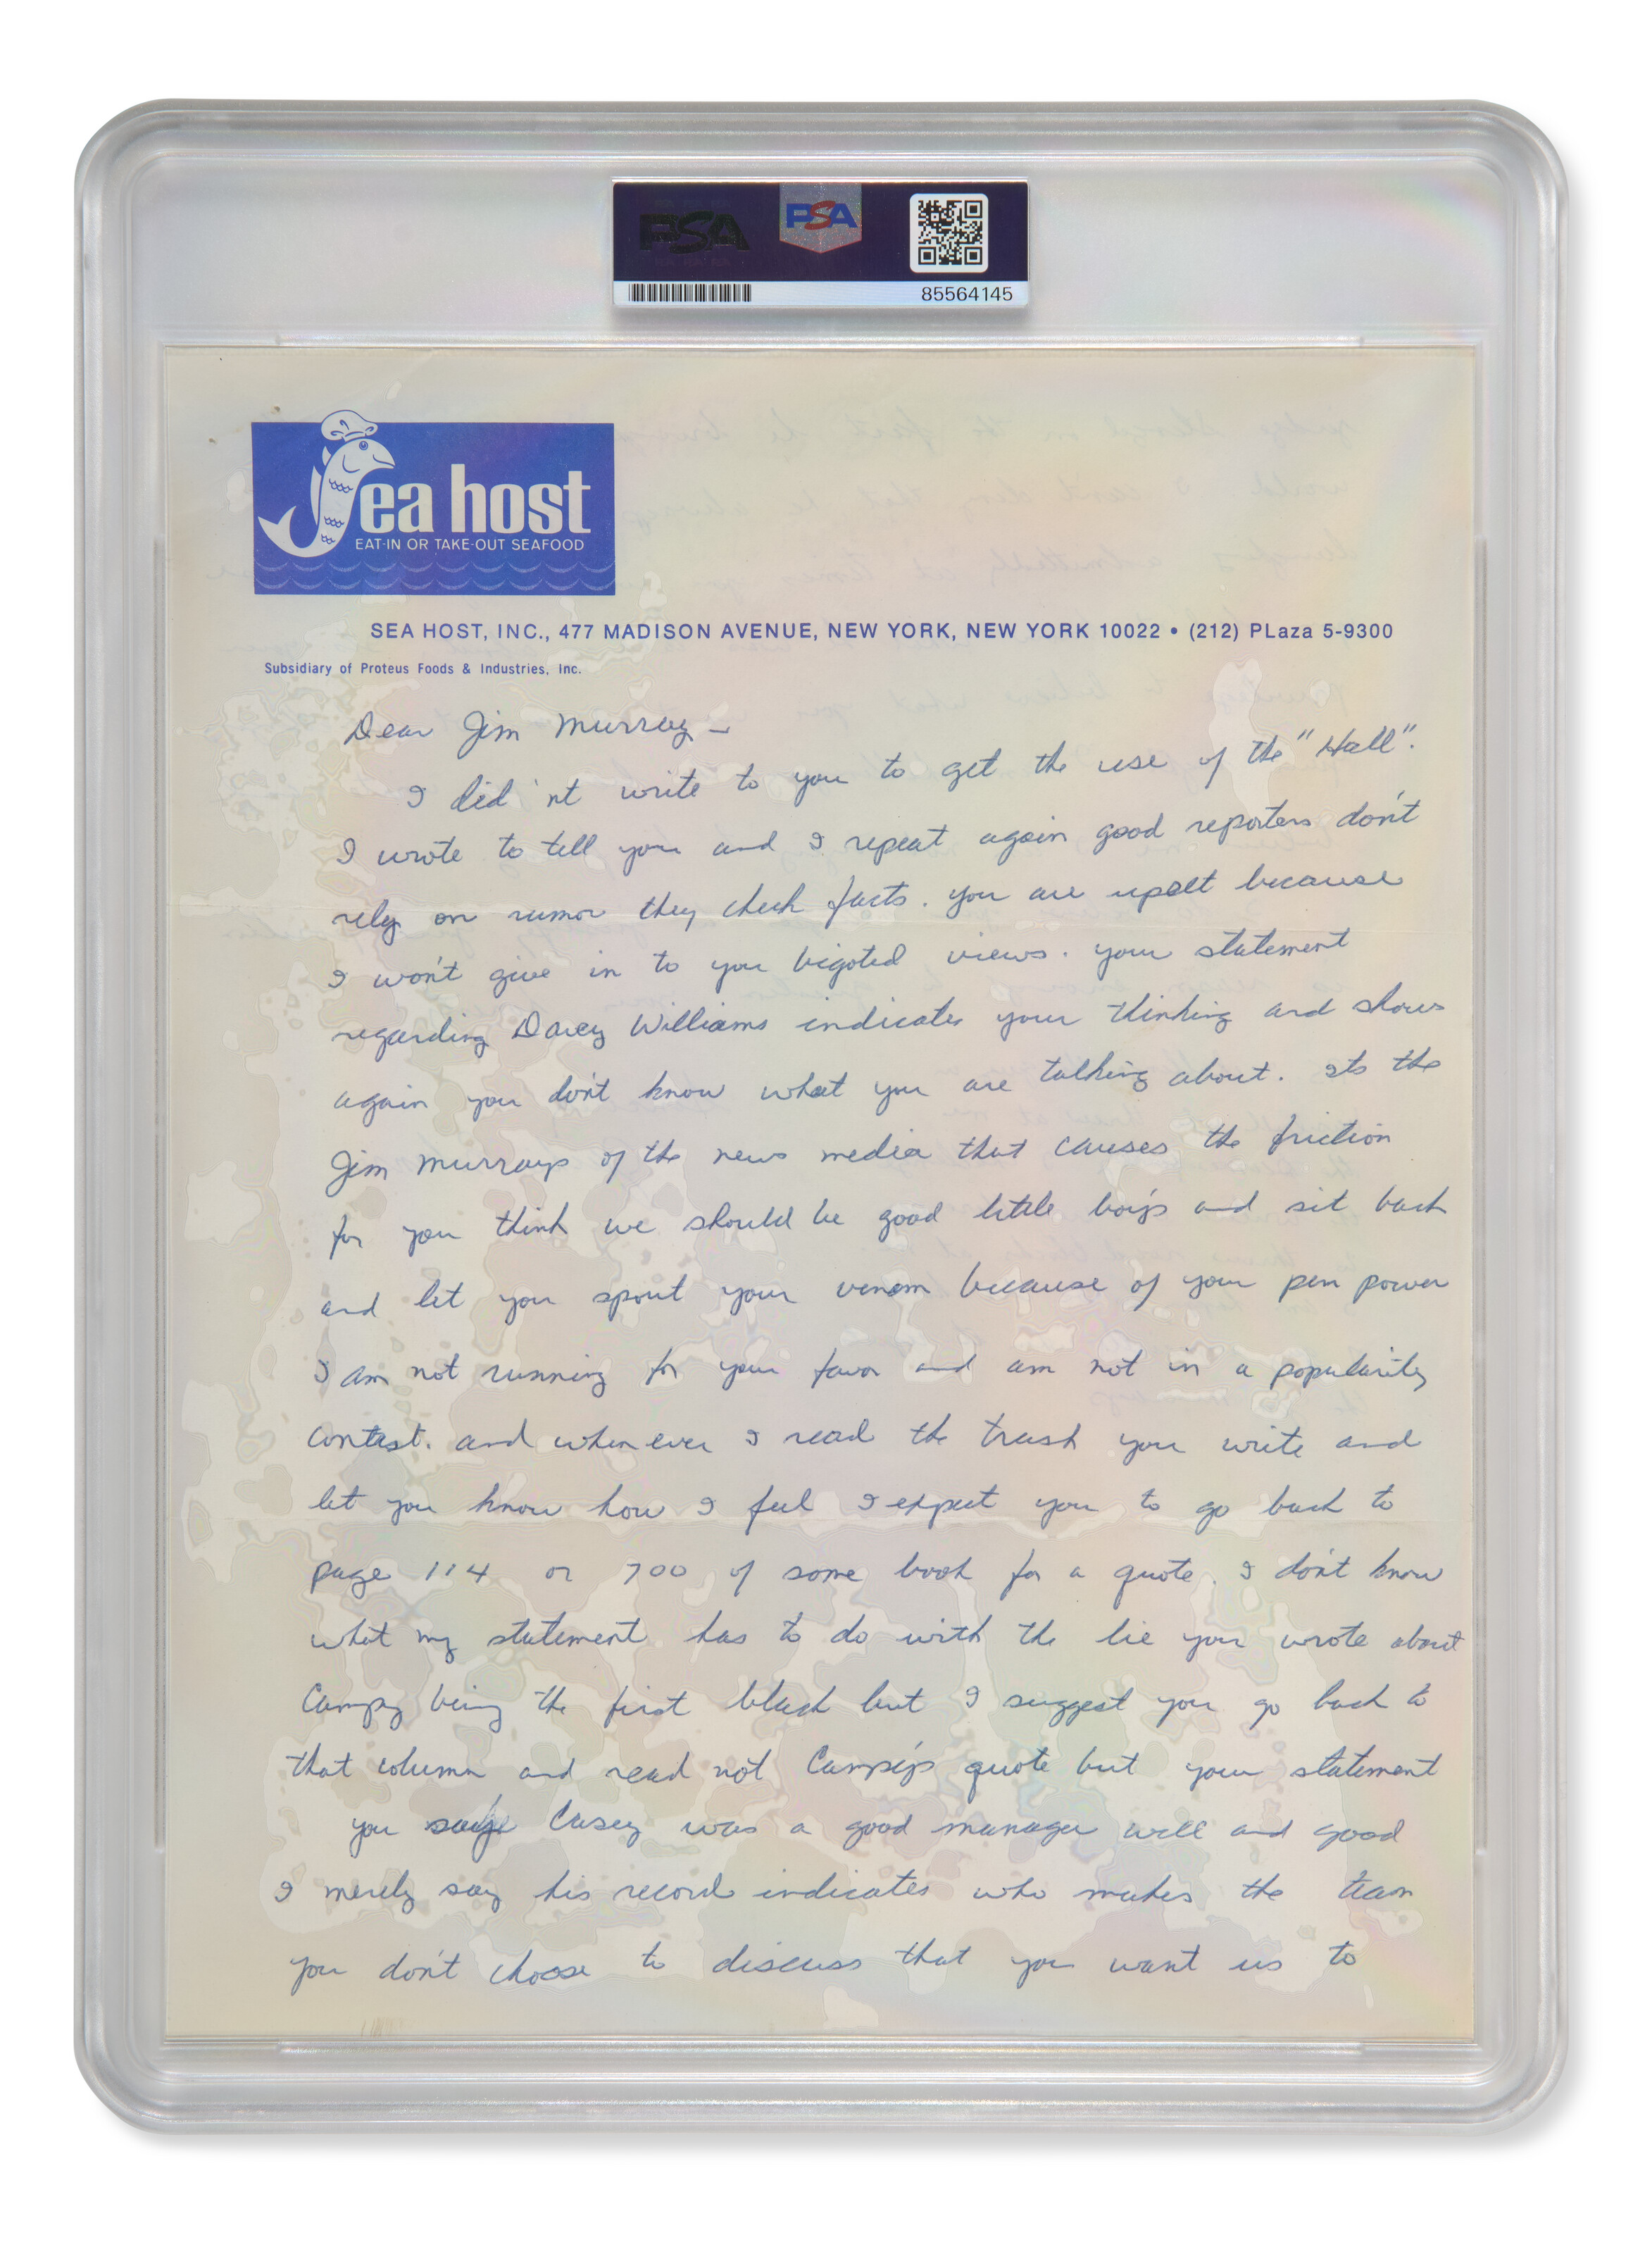 PSA
PSA
85564145
Sea host
EAT-IN OR TAKE-OUT SEAFOOD
SEA HOST, INC., 477 MADISON AVENUE, NEW YORK, NEW YORK 10022 • (212) PLaza 5-9300
Subsidiary of Proteus Foods & Industries, Inc.
Dear Jim Murray –
I did'nt write to you to get the use of the "Hall".
I wrote to tell you and I repeat again good reporters don't
rely on rumor they check facts. you are upset because
I won't give in to you bigoted views. your statement
regarding Davey Williams indicates your thinking and shows
again you don't know what you are talking about. Its the
Jim Murrays of the news media that causes the friction
for you think we should be good little boys and sit back
and let you spout your venom because of your pen power
I am not running for your favor and am not in a popularity
contest. and when ever I read the trash you write and
let you know how I feel I expect you to go back to
page 114 or 700 of some book for a quote. I don't know
what my statement has to do with the lie you wrote about
Campy being the first black but I suggest you go back to
that column and read not Campy's quote but your statement
you Casey was a good manager well and good
I merely say his record indicates who makes the team
you don't choose to discuss that you want us to